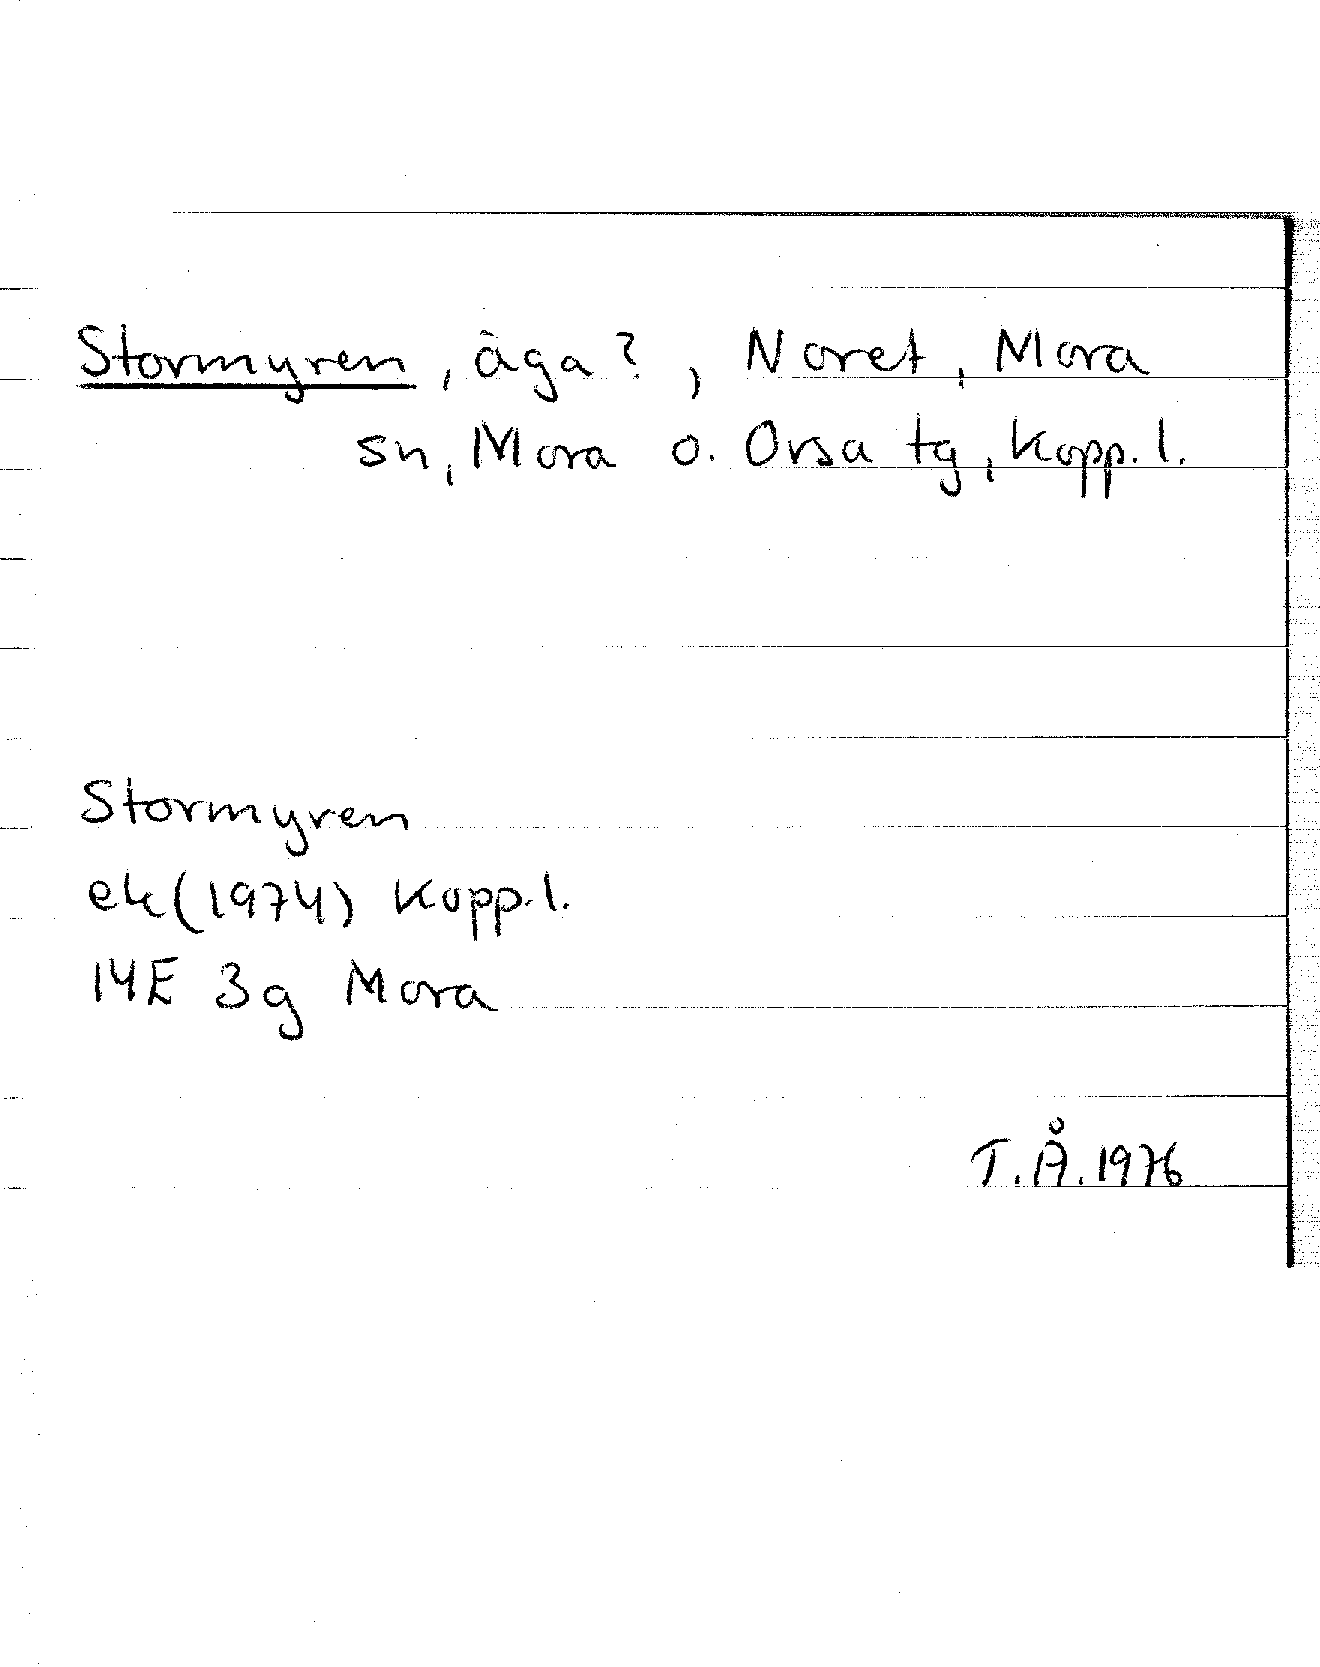 Stormyren, äga?, Noret, Mora
sn, Mora o. Orsa tg, Kopp. l.
Stormyren
ek(1974) Kopp. l.
14E 3g Mora
T.Å.1976